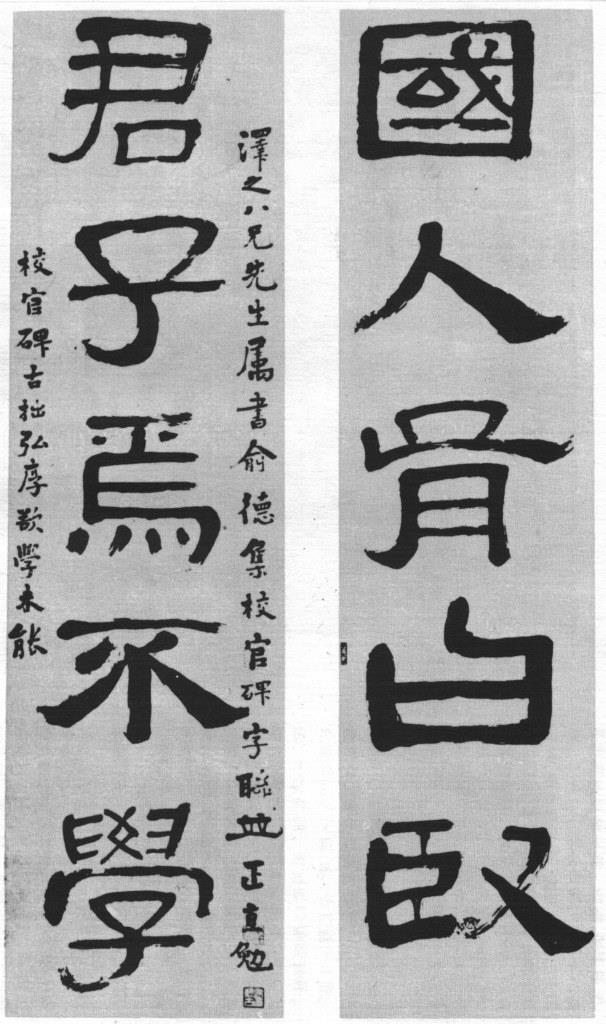 國人胥曰臤
君子焉不學
澤之八兄先生属書俞德集校官碑字聯並正直勉
校官碑古拙弘厚欲學未能